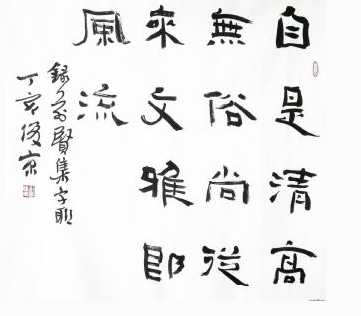 自是清高
無俗尚從
來文雅即
風流
錄前賢集字聯
丁亥俊京